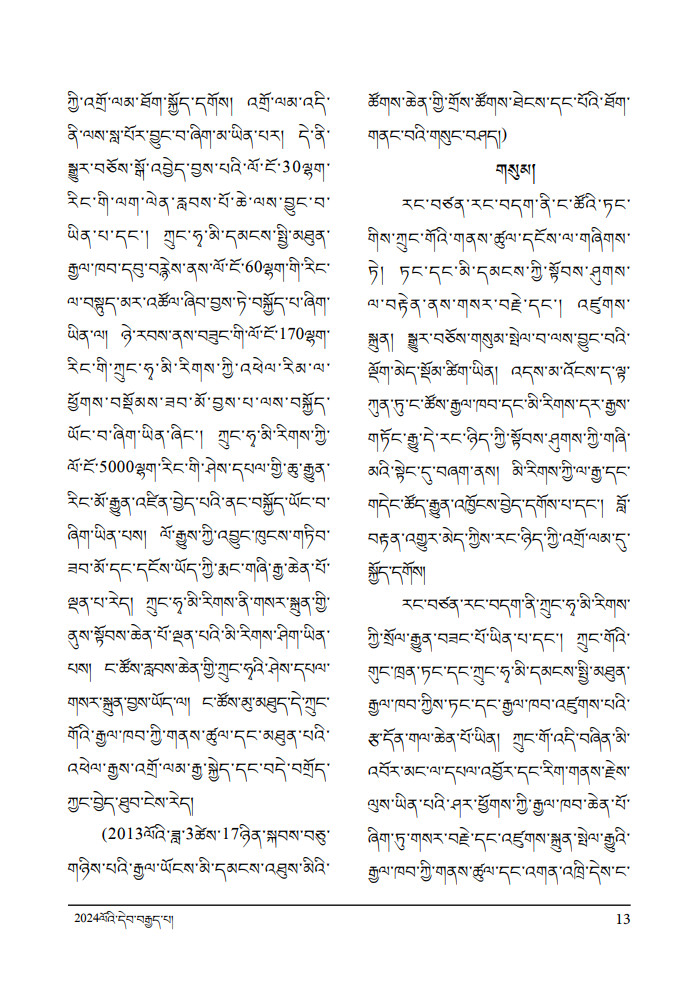 ཀྱི་འགྲོ་ལམ་ཐོག་སྐྱོད་དགོས། འགྲོ་ལམ་འདི་
ནི་ལས་སླ་པོར་བྱུང་བ་ཞིག་མ་ཡིན་པར། དེ་ནི་
སྒྱུར་བཅོས་སྒོ་འབྱེད་བྱས་པའི་ལོ་ངོ་30ལྷག་
རིང་གི་ལག་ལེན་རླབས་པོ་ཆེ་ལས་བྱུང་བ་
ཡིན་པ་དང་། ཀྲུང་ཧྭ་མི་དམངས་སྤྱི་མཐུན་
རྒྱལ་ཁབ་དབུ་བརྙེས་ནས་ལོ་ངོ་60ལྷག་གི་རིང་
ལ་བསྟུད་མར་འཚོལ་ཞིབ་བྱས་ཏེ་བསྐྱོད་པ་ཞིག་
ཡིན་ལ། ཉེ་རབས་ནས་བཟུང་གི་ལོ་ངོ་170ལྷག་
རིང་གི་ཀྲུང་ཧྭ་མི་རིགས་ཀྱི་འཕེལ་རིམ་ལ་
ཕྱོགས་བསྡོམས་ཟབ་མོ་བྱས་པ་ལས་བསྐྱོད་
ཡོང་བ་ཞིག་ཡིན་ཞིང་། ཀྲུང་ཧྭ་མི་རིགས་ཀྱི་
ལོ་ངོ་5000ལྷག་རིང་གི་ཤེས་དཔལ་གྱི་ཆུ་རྒྱུན་
རིང་མོ་རྒྱུན་འཛིན་བྱེད་པའི་ནང་བསྐྱོད་ཡོང་བ་
ཞིག་ཡིན་པས། ལོ་རྒྱུས་ཀྱི་འབྱུང་ཁུངས་གཏིབ་
ཟབ་མོ་དང་དངོས་ཡོད་ཀྱི་རྨང་གཞི་རྒྱ་ཆེན་པོ་
ལྡན་པ་རེད། ཀྲུང་ཧྭ་མི་རིགས་ནི་གསར་སྐྲུན་གྱི་
ནུས་སྟོབས་ཆེན་པོ་ལྡན་པའི་མི་རིགས་ཤིག་ཡིན་
པས། ང་ཚོས་རླབས་ཆེན་གྱི་ཀྲུང་ཧྭའི་ཤེས་དཔལ་
གསར་སྐྲུན་བྱས་ཡོད་ལ། ང་ཚོས་མུ་མཐུད་དེ་ཀྲུང་
གོའི་རྒྱལ་ཁབ་ཀྱི་གནས་ཚུལ་དང་མཐུན་པའི་
འཕེལ་རྒྱས་འགྲོ་ལམ་རྒྱ་སྐྱེད་དང་བདེ་བགྲོད་
ཀྱང་བྱེད་ཐུབ་ངེས་རེད།
(2013ལོའི་ཟླ་3ཚེས་17ཉིན་སྐབས་བཅུ་
གཉིས་པའི་རྒྱལ་ཡོངས་མི་དམངས་འཐུས་མིའི་
ཚོགས་ཆེན་གྱི་གྲོས་ཚོགས་ཐེངས་དང་པོའི་ཐོག་
གནང་བའི་གསུང་བཤད།)
གསུམ།
རང་བཙན་རང་བདག་ནི་ང་ཚོའི་ཏང་
གིས་ཀྲུང་གོའི་གནས་ཚུལ་དངོས་ལ་གཞིགས་
ཏེ། ཏང་དང་མི་དམངས་ཀྱི་སྟོབས་ཤུགས་
ལ་བརྟེན་ནས་གསར་བརྗེ་དང་། འཛུགས་
སྐྲུན། སྒྱུར་བཅོས་གསུམ་སྤེལ་བ་ལས་བྱུང་བའི་
ལྡོག་མེད་སྡོམ་ཚིག་ཡིན། འདས་མ་འོངས་ད་ལྟ་
ཀུན་ཏུ་ང་ཚོས་རྒྱལ་ཁབ་དང་མི་རིགས་དར་རྒྱས་
གཏོང་རྒྱུ་དེ་རང་ཉིད་ཀྱི་སྟོབས་ཤུགས་ཀྱི་གཞི་
མའི་སྟེང་དུ་བཞག་ནས། མི་རིགས་ཀྱི་ལ་རྒྱ་དང་
གདེང་ཚོད་རྒྱུན་འཁྱོངས་བྱེད་དགོས་པ་དང་། བློ་
བརྟན་འགྱུར་མེད་ཀྱིས་རང་ཉིད་ཀྱི་འགྲོ་ལམ་དུ་
སྐྱོད་དགོས།
རང་བཙན་རང་བདག་ནི་ཀྲུང་ཧྭ་མི་རིགས་
ཀྱི་སྲོལ་རྒྱུན་བཟང་པོ་ཡིན་པ་དང་། ཀྲུང་གོའི་
གུང་ཁྲན་ཏང་དང་ཀྲུང་ཧྭ་མི་དམངས་སྤྱི་མཐུན་
རྒྱལ་ཁབ་ཀྱིས་ཏང་དང་རྒྱལ་ཁབ་འཛུགས་པའི་
རྩ་དོན་གལ་ཆེན་པོ་ཡིན། ཀྲུང་གོ་འདི་བཞིན་མི་
འབོར་མང་ལ་དཔལ་འབྱོར་དང་རིག་གནས་རྗེས་
ལུས་ཡིན་པའི་ཤར་ཕྱོགས་ཀྱི་རྒྱལ་ཁབ་ཆེན་པོ་
ཞིག་ཏུ་གསར་བརྗེ་དང་འཛུགས་སྐྲུན་སྤེལ་རྒྱུའི་
རྒྱལ་ཁབ་ཀྱི་གནས་ཚུལ་དང་འགན་འཁྲི་དེས་ང་
2024ལོའི་དེབ་བརྒྱད་པ།
13